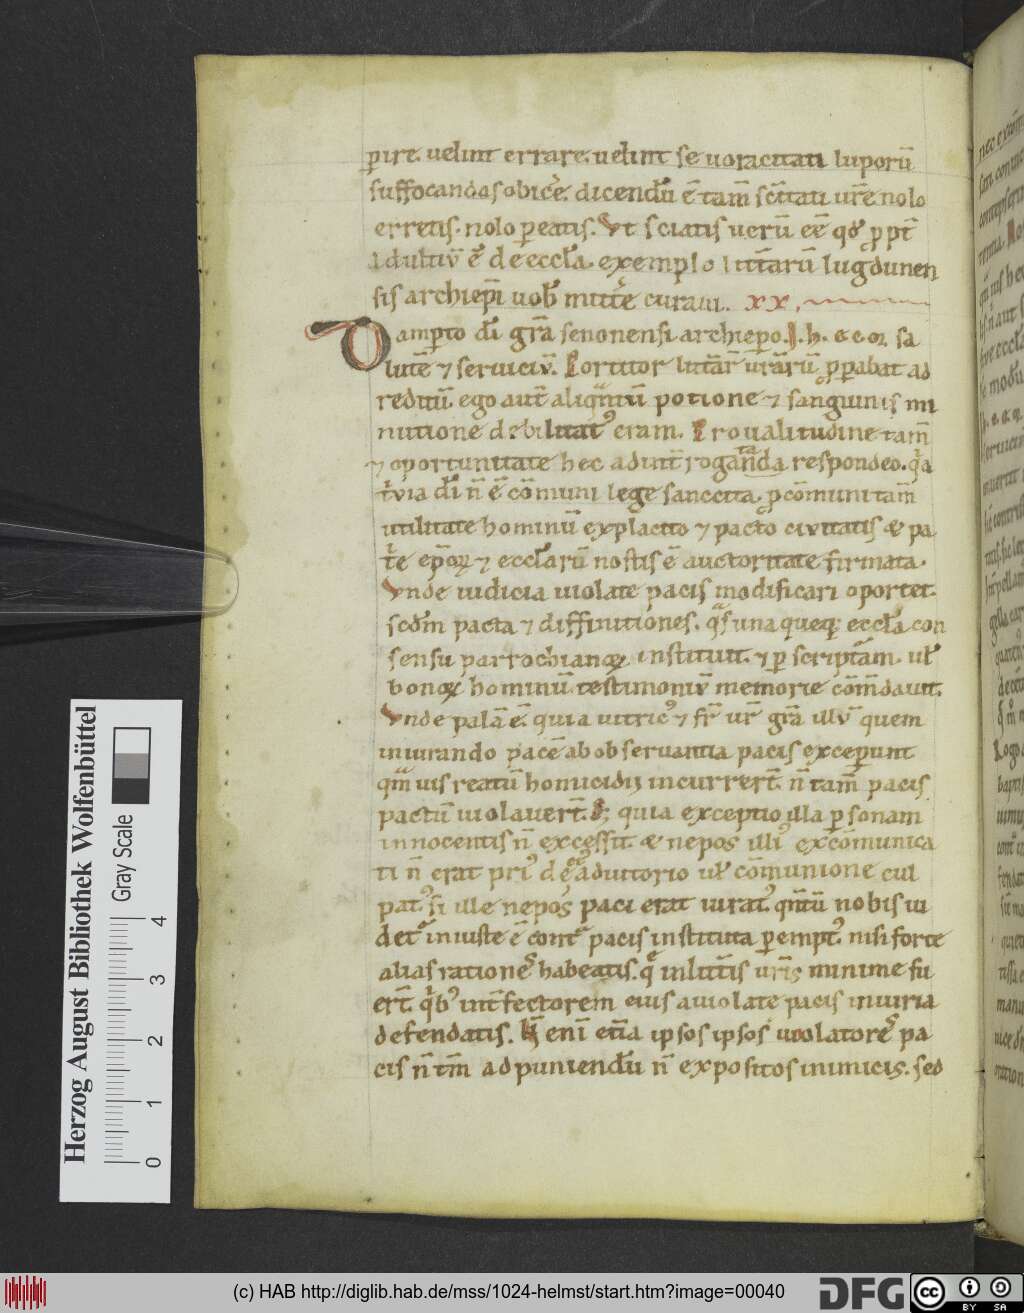 pire. uelint errare. uelint se uoracitati luporū
suffocandas obicẽ. dicendũ ē tam̄ scītati ur̄e nolo
erretis. nolo peatis. Vt sciatis uerū eē qđ ppt̄
adultiū ē de ecclā. exemplo litt̄arū lugdunen
sis archiepī uob mitte curaui. xx.
Dampto dī grā senonensi archiepo. I. h. e. c. m. sa
lutē ⁊ seruiciū. Portitor litt̄ar̄ ur̄arū pparabat ad
reditū. ego aut̄ aliqntū potione ⁊ sanguinis mi
nutione debilitatꝰ eram. Pro ualitudine tam̄
⁊ oportunitate hec ad int̄roganda respondeo. qa
t̄uia dī n̄ ē cōmuni lege sanccita. p cōmuni tam̄
utilitate hominū ex placito ⁊ pacto ciuitatis & pa
t̄e ep̄oꝝ ⁊ ecclārū nostis ē auctoritate firmata.
Vnde iudicia uiolate pacis modificari oportet.
scdm̄ pacta ⁊ diffinitiones. qs una queq; ecclā con
sensu parrochianoꝝ instituit. ⁊ p script̄am. ul
bonoꝝ hominū. testimoniū memorie cōmdauit.
Vnde palā ē. quia uitricꝰ ⁊ fr̄ ur̄ grā illū quem
iniurando pacē ab obseruantia pacis exceperunt
qm̄uis reatū homicidij incurrert̄. n̄ tam̄ pacis
pactū uiolauert̄. S; quia exceptio illa psonam
innocentis n̄ excessit. & nepos illiꝰ excōmunica
ti n̄ erat priꝰ de ei adiutorio ul cōmunione cul
patꝰ. si ille nepos paci erat iuratꝰ. qntū nobis ui
detꝰ iniuste ē cont̄ pacis instituta pemptꝰ. nisi forte
alias rationes habeatis. q̄ in litt̄is ur̄is minime fu
ert̄. qbꝰ int̄fectorem eius a uiolate pacis iniuria
defendatis. Nā eni etīa ipsos ipsos uiolatores pa
cis n̄ tm̄ ad puniendū n̄ expositos inimicis. sed
Herzog August Bibliothek Wolfenbüttel
Gray Scale
0 1 2 3 4
(c) HAB http://diglib.hab.de/mss/1024-helmst/start.htm?image=00040
DFG cc BY SA